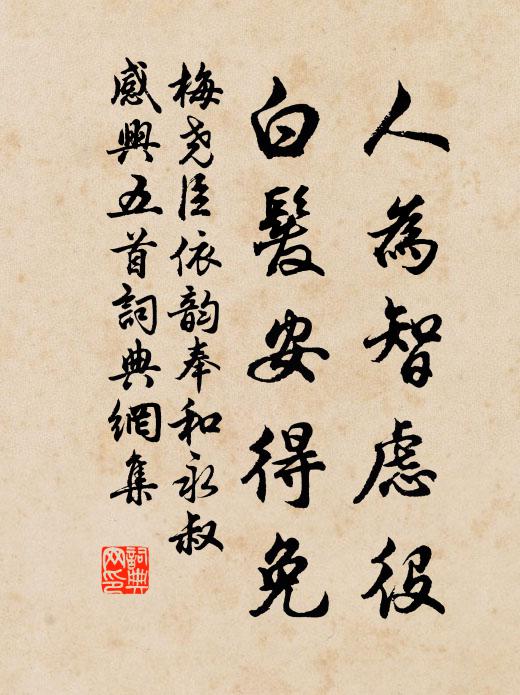 人為智慮役
白髮安得免
梅尧臣依韵奉和永叔
感興五首詞典網集
詞典
网印